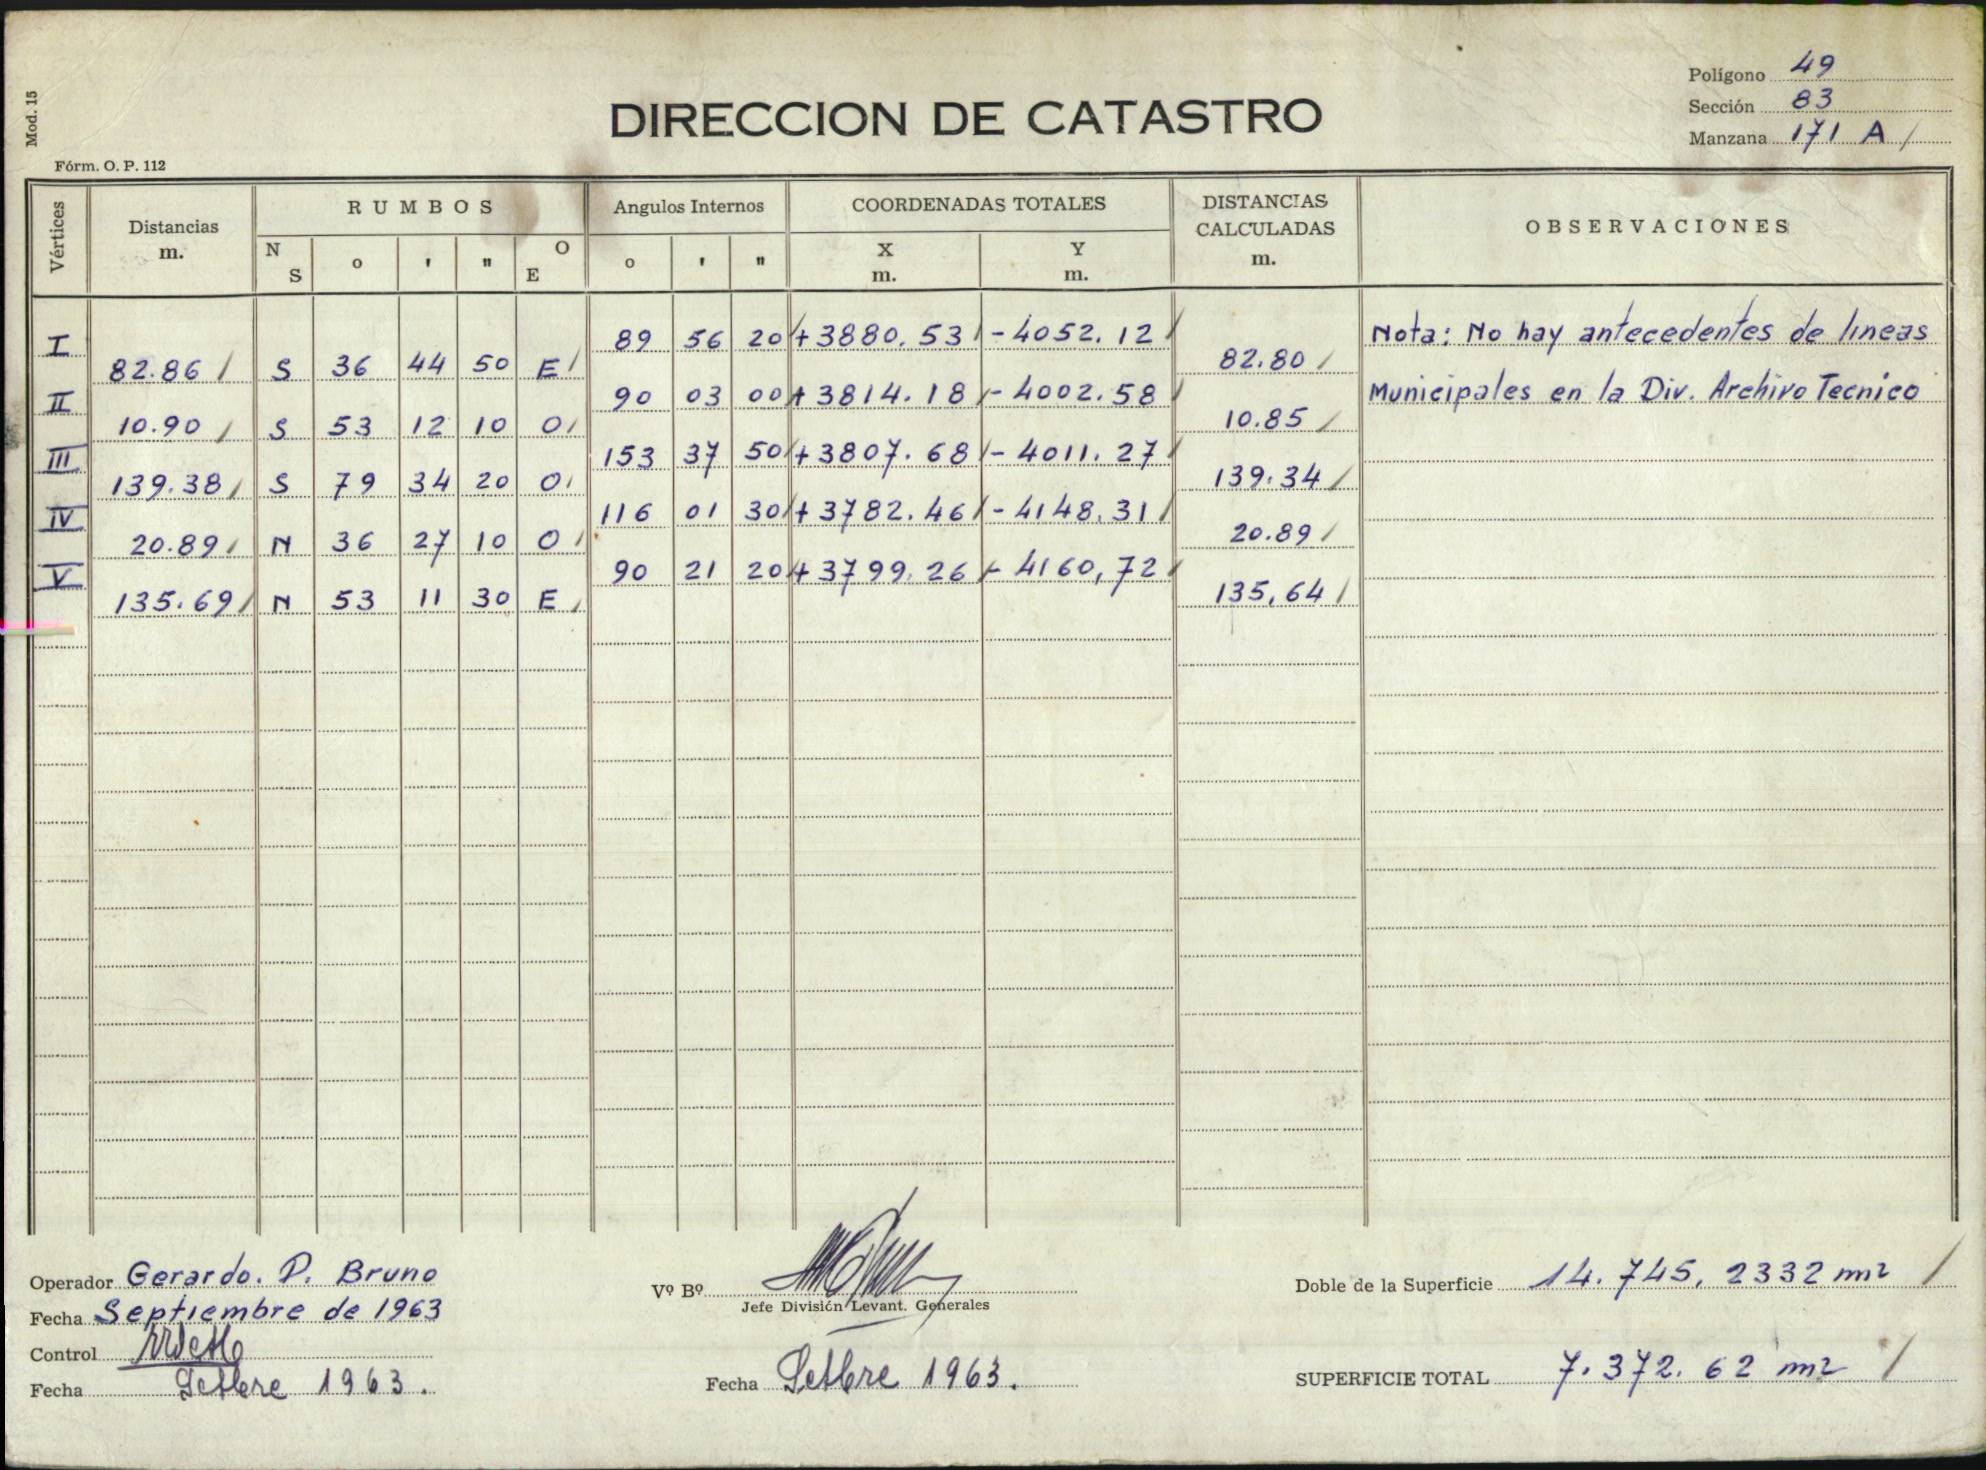 Mod. 15
Polígono 49
Sección 83
Manzana 171 A /
DIRECCION DE CATASTRO
Fórm. O. P. 112
Vértices Distancias m. RUMBOS N S o ' " O E Angulos Internos o ' " COORDENADAS TOTALES X m. Y m. DISTANCIAS CALCULADAS m. OBSERVACIONES
I 89 56 20 +3880.53 / -4052.12 / Nota: No hay antecedentes de lineas
82.86 / S 36 44 50 E / 82.80 /
II 90 03 00 +3814.18 / -4002.58 / Municipales en la Div. Archivo Tecnico
10.90 / S 53 12 10 O / 10.85 /
III 153 37 50 +3807.68 / -4011.27 /
139.38 / S 79 34 20 O / 139.34 /
IV 116 01 30 +3782.46 / -4148.31 /
20.89 / N 36 27 10 O / 20.89 /
V 90 21 20 +3799.26 / -4160,72 /
135.69 / N 53 11 30 E / 135,64 /
Operador Gerardo. D. Bruno
Fecha Septiembre de 1963
Control
Fecha Setbre 1963.
Vº Bº
Jefe División Levant. Generales
Fecha Setbre 1963.
Doble de la Superficie 14.745,2332 m2 /
SUPERFICIE TOTAL 7.372.62 m2 /